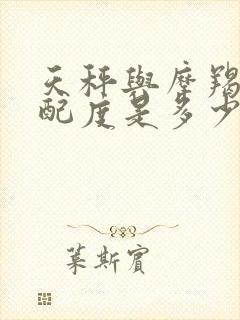 天秤與摩羯
配度是多少
萊斯賓